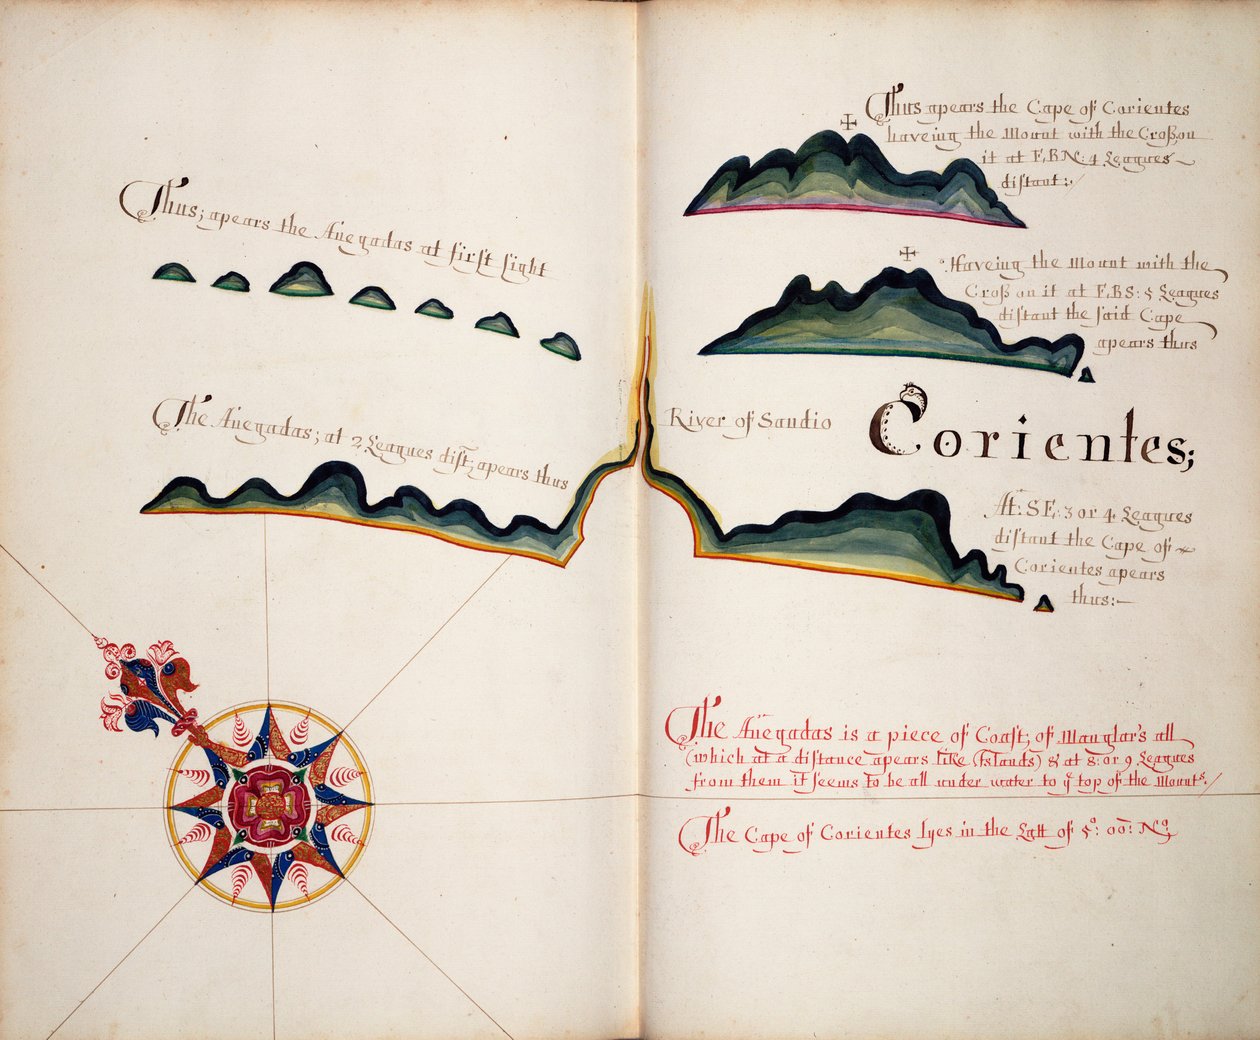 Thus; apears the Anegadas at first sight
The Anegadas; at 2 Leagues dist; apears thus
Thus apears the Cape of Corientes
haveing the Mount with the Cross on
it at E,BN: 4 Leagues
distant:
Haveing the Mount with the
Cross on it at E,BS: 5 Leagues
distant the said Cape
apears thus
River of Sandio
Corientes;
At: SE: 3 or 4 Leagues
distant the Cape of
Corientes apears
thus:
The Anegadas is a piece of Coast; of Manglar's all
(which at a distance apears like Islands) & at 8: or 9 Leagues
from them it seems to be all under water to yᵉ top of the Mountˢ.
The Cape of Corientes lyes in the Latt of 5º: 00: Nº